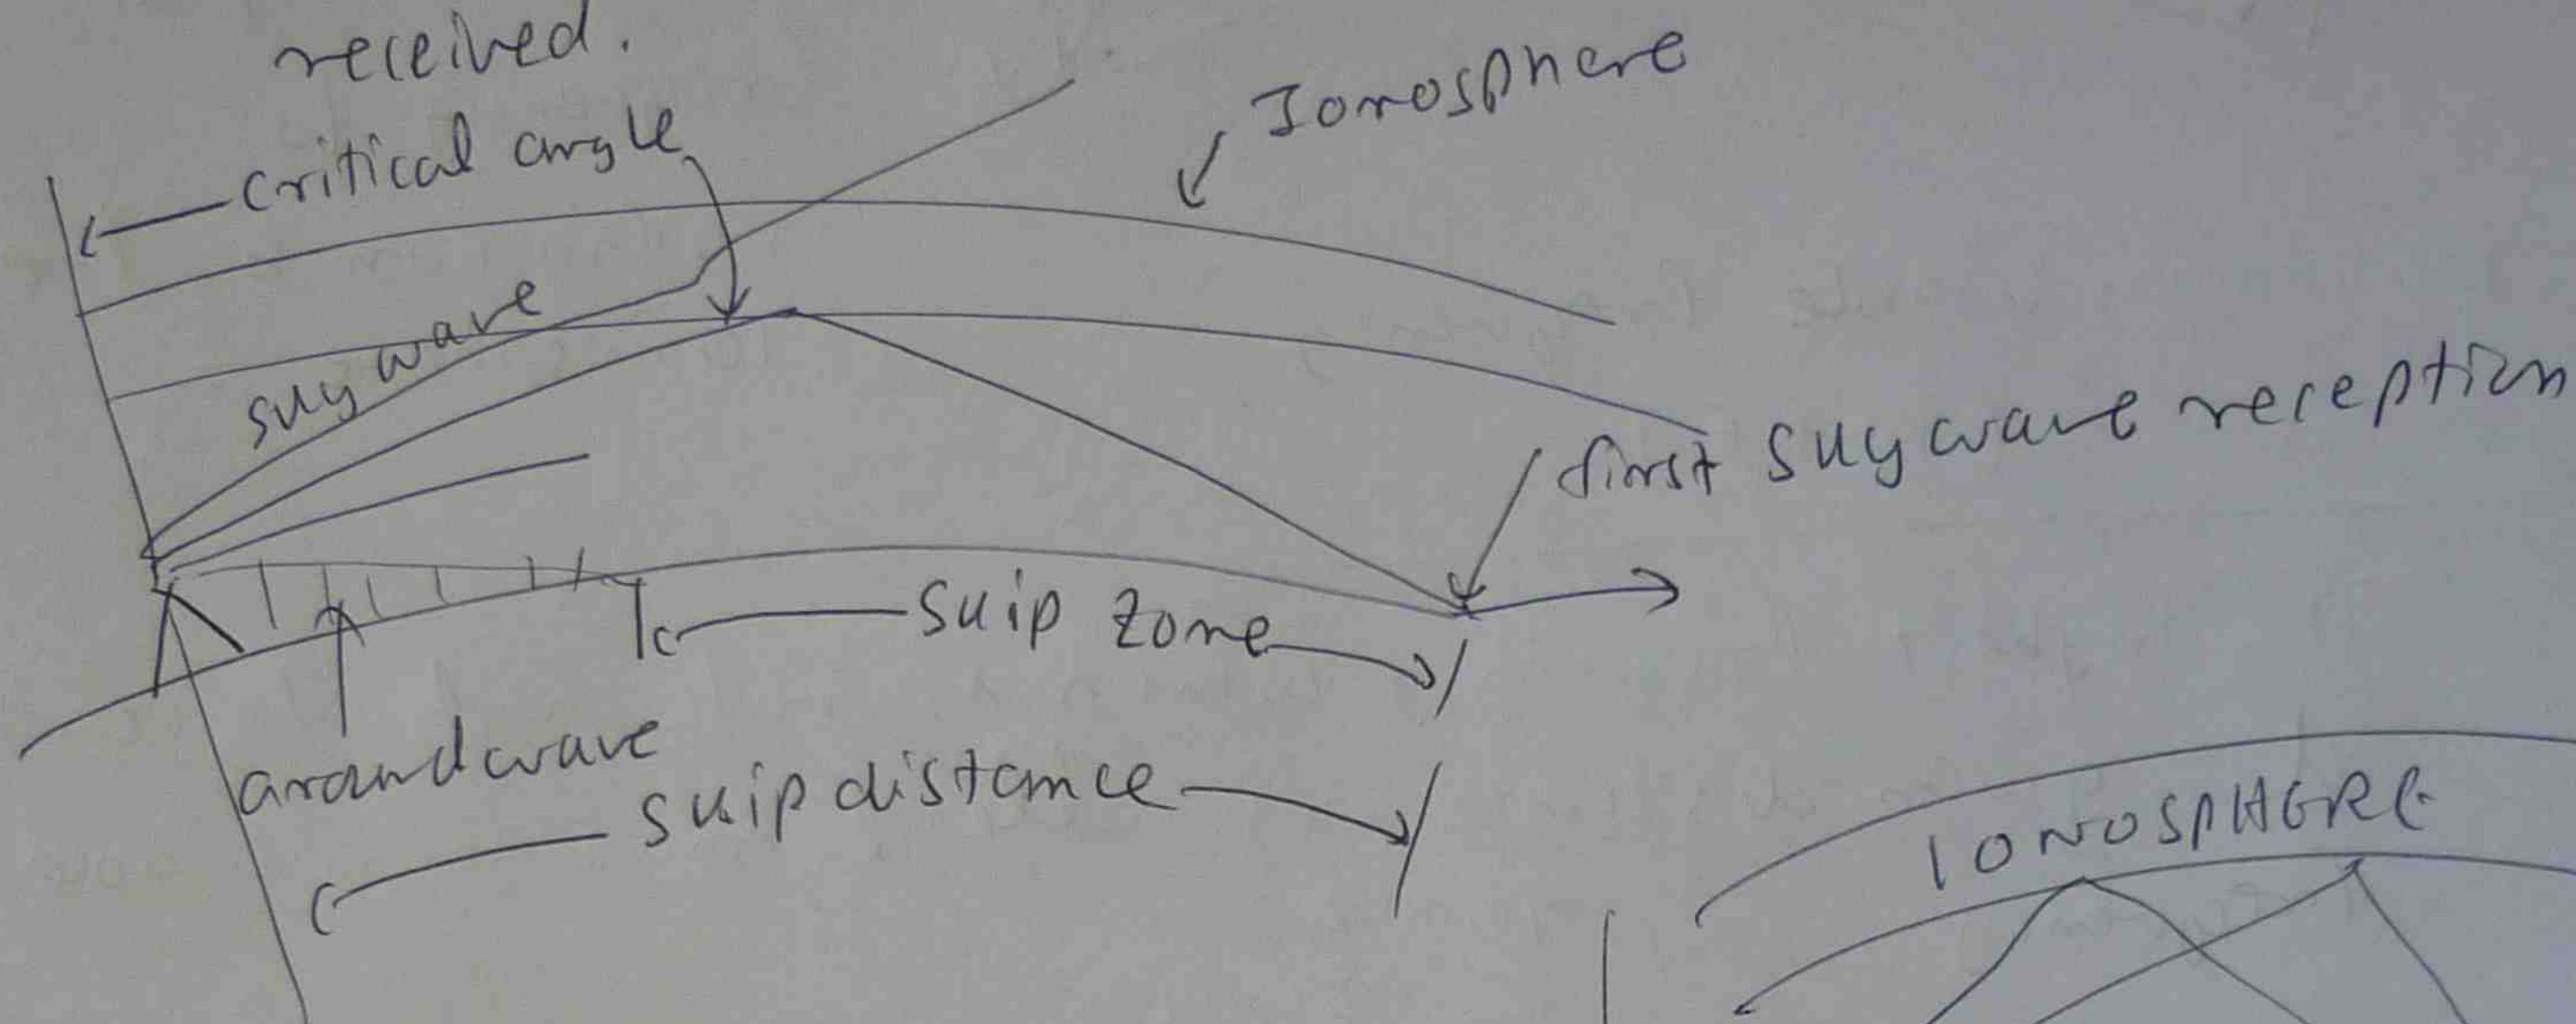 received.
critical angle
Ionosphere
sky wave
first sky wave reception
skip zone
groundwave
skip distance
IONOSPHERE